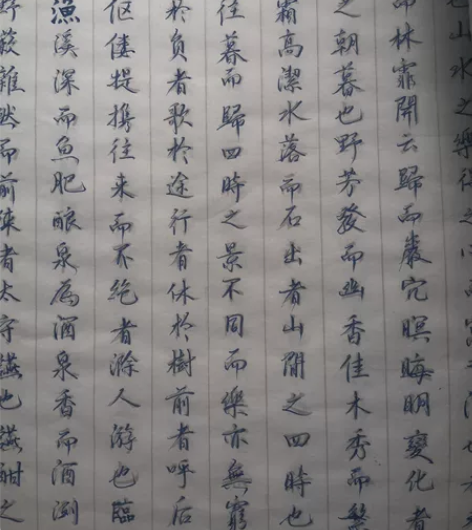 也山水之樂得之心而寓之酒也
而林霏開云歸而巖穴暝晦明變化者
之朝暮也野芳發而幽香佳木秀而繁
霜高潔水落而石出者山間之四時也
往暮而歸四時之景不同而樂亦無窮
於負者歌於途行者休於樹前者呼后
伛僂提携往来而不绝者滁人游也臨
漁溪深而魚肥酿泉為酒泉香而酒洌
野蔌雜然而前陳者太守讌也讌酣之